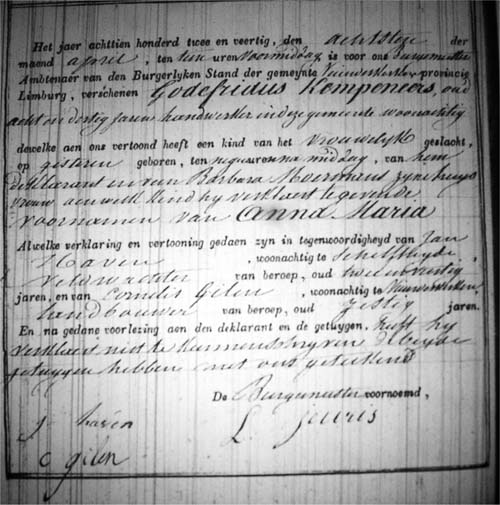 Het jaer achttien honderd twee en veertig, den achtsten der
maend april, ten tien uren voormiddag, is voor ons burgemeester
Ambtenaer van den Burgerlyken Stand der gemeynte Nieuwerkerken provincie
Limburg, verschenen Godefridus Kempeneers, oud
acht en dertig jaren handwerker in deze gemeente woonachtig
dewelke aen ons vertoond heeft een kind van het vrouwelyk geslacht,
op gisteren geboren, ten negen uren na middag, van hem
deklarant en van Barbara Moermans zyne huys
vrouw aen welk kind hy verklaert te gevende
voornamen van Anna Maria
Alwelke verklaring en vertooning gedaen zyn in tegenwoordigheyd van Jan
Haven, woonachtig te Schelfheyde,
Veldwachter van beroep, oud twee en veertig
jaren, en van Cornelis Gilen, woonachtig te Nieuwerkerken,
Landbouwer van beroep, oud zestig jaren.
En na gedane voorlezing aen den deklarant en de getuygen, heeft hy
verklaert niet te kunnen schryven de beyde
getuygen hebben met ons geteekend
De Burgemeester voornoemd,
J haven
L jeuris
C gilen